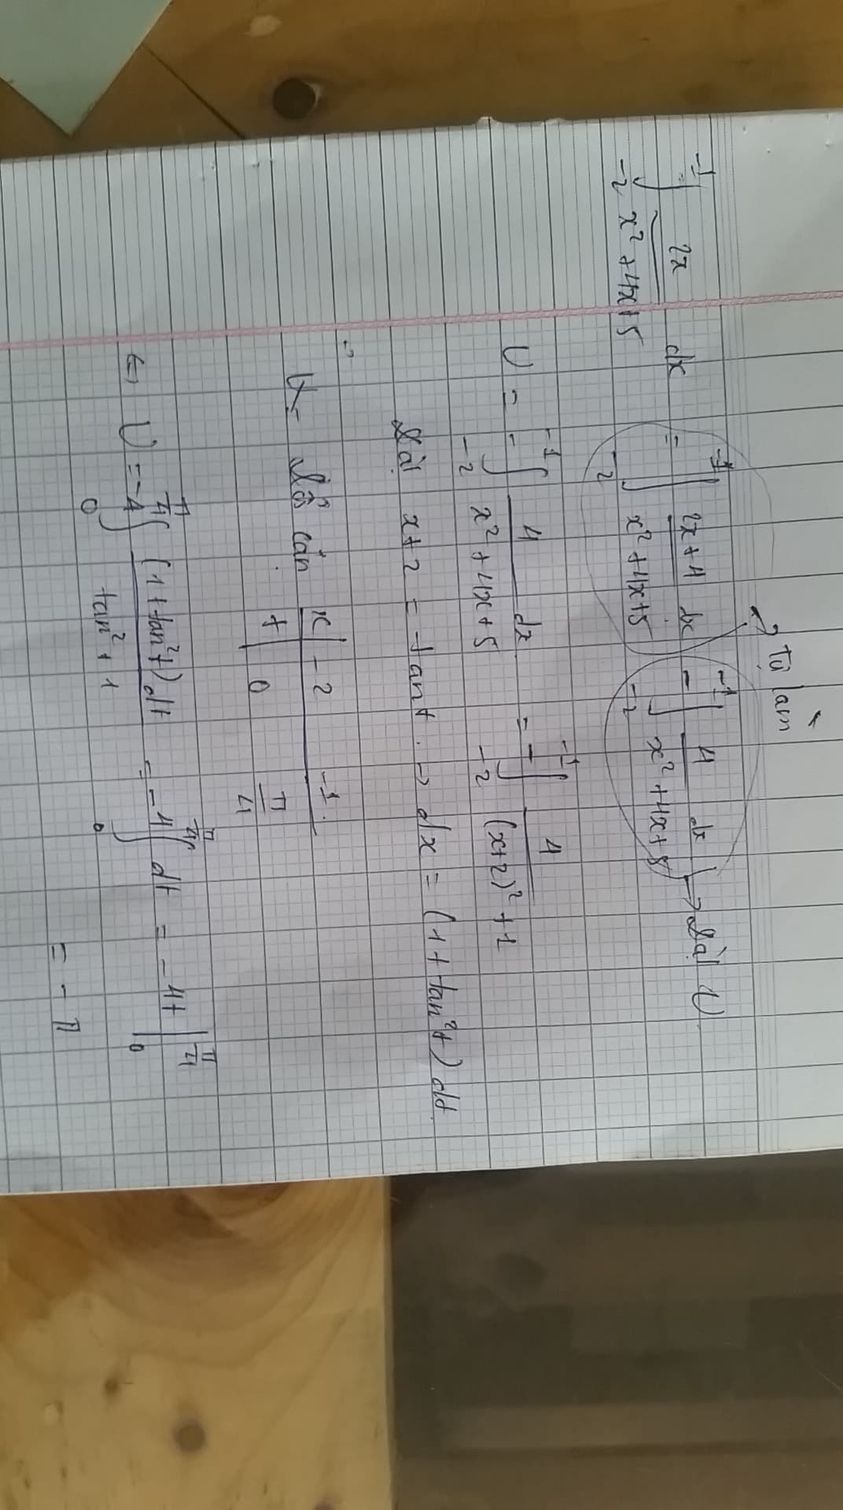 → Tự làm
∫_{-2}^{-1} 2x/(x²+4x+5) dx = ∫_{-2}^{-1} (2x+4)/(x²+4x+5) dx - ∫_{-2}^{-1} 4/(x²+4x+5) dx → Đặt U
U = -∫_{-2}^{-1} 4/(x²+4x+5) dx = -∫_{-2}^{-1} 4/((x+2)²+1)
Đặt x+2 = tant. → dx = (1+tan²t)dt.
Đổi cận x | -2 -1.
t | 0 π/4
⇔ U = -4∫_{0}^{π/4} (1+tan²t)dt/(tan²+1) = -4∫_{0}^{π/4} dt = -4t |_{0}^{π/4}
= -π